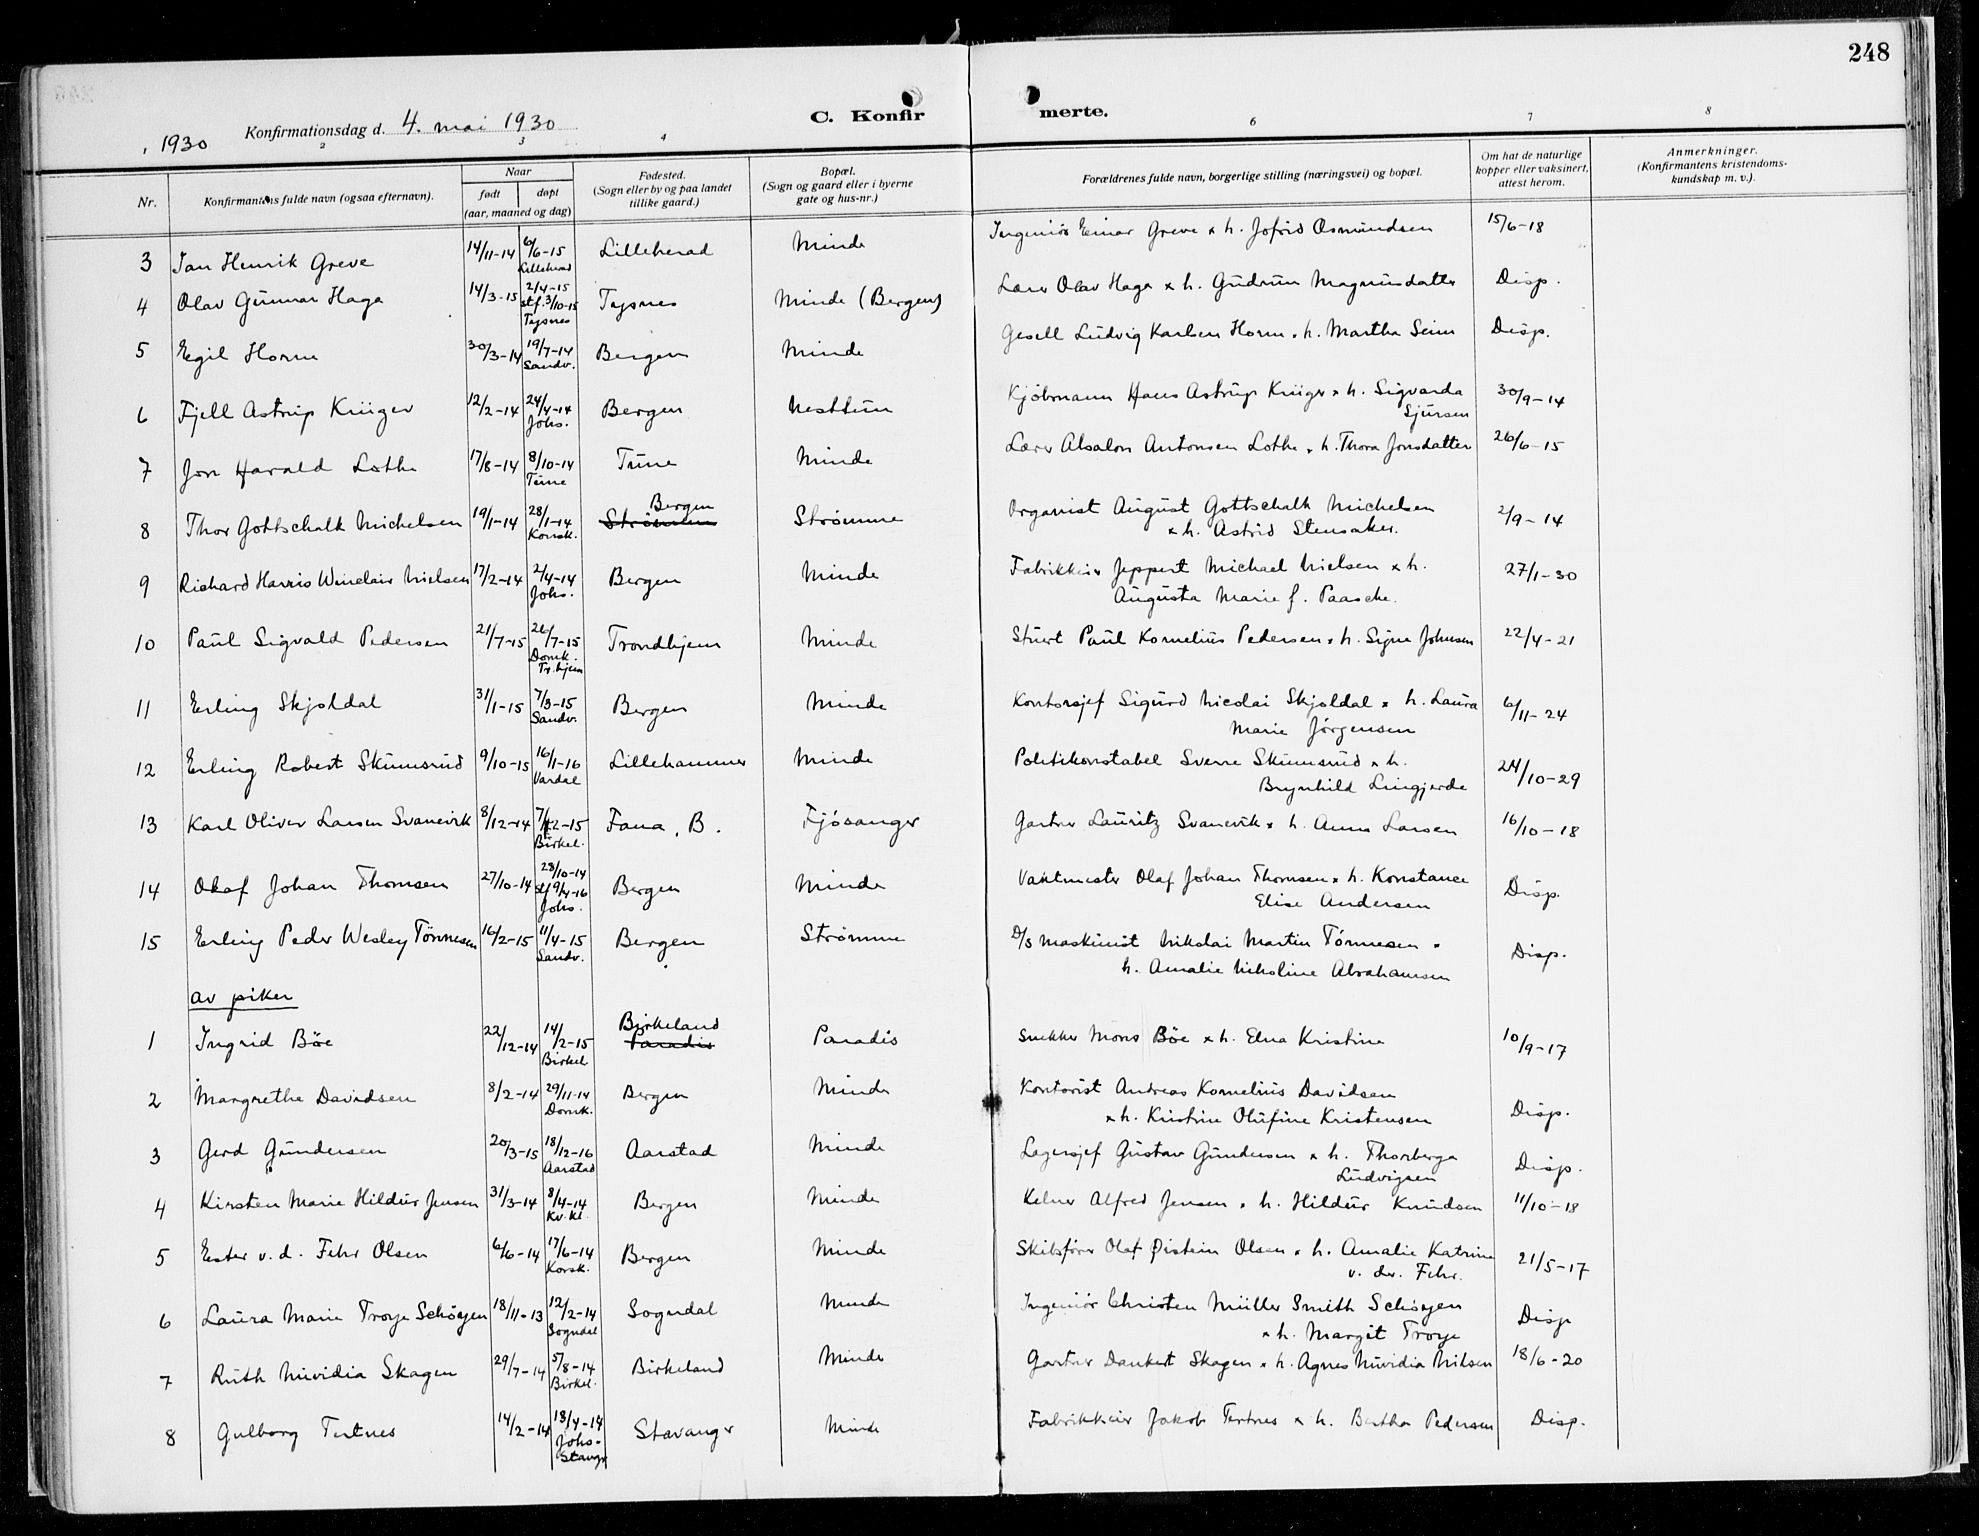 248
C. Konfirmerte.
1930 Konfirmationsdag d. 4. mai 1930
2 3 4 6 7 8
Nr. Konfirmantens fulde navn (ogsaa efternavn). Naar født døpt (aar, maaned og dag) Fødested. (Sogn eller by og paa landet tillike gaard.) Bopæl. (Sogn og gaard eller i byerne gate og hus-nr.) Forældrenes fulde navn, borgerlige stilling (næringsvei) og bopæl. Om hat de naturlige kopper eller vaksinert, attest herom. Anmerkninger. (Konfirmantens kristendoms-kundskap m. v.).
3 Jan Henrik Greve 14/11-14 6/6-15 Lilleherad Lilleherad Minde Ingeniør Einar Greve x h. Jofrid Osmundsen 15/6-18
4 Olav Gunnar Haga 14/3-15 2/4-15 stf. 3/10-15 Tysnes Tysnes Minde (Bergen) Lærer Olav Haga x h. Gudrun Magnusdatter Disp.
5 Egil Horne 30/3-14 19/7-14 Sandv. Bergen Minde Gesell Ludvig Karlsen Horne x h. Martha Seim Disp.
6 Fjell Astrup Krüger 12/2-14 24/4-14 Johs. Bergen Nesttun Kjøbmann Hans Astrup Krüger x h. Sigvarda Sjursen 30/9-14
7 Jon Harald Lothe 17/8-14 8/10-14 Tune Tune Minde Lærer Absalon Antonsen Lothe x h. Thora Jonsdatter 26/6-15
8 Thor Gottschalk Michelsen 19/1-14 28/1-14 Korsk. Bergen Strømmen Strømme Organist August Gottschalk Michelsen x h. Astrid Stensaker. 2/9-14
9 Richard Harris Winclair Nielsen 17/2-14 2/4-14 Johs. Bergen Minde Fabrikkeier Jeppert Michael Nielsen x h. Augusta Marie f. Paasche. 27/1-30
10 Paul Sigvald Pedersen 21/7-15 26/7-15 Domk. Tr.hjem Trondhjem Minde Stuert Paul Kornelius Pedersen x h. Signe Johnsen 22/4-21
11 Erling Skjoldal 31/1-15 7/3-15 Sandv. Bergen Minde Kontorsjef Sigurd Nicolai Skjoldal x h. Laura Marie Jørgensen 6/11-24
12 Erling Robert Skumsrud 9/10-15 16/1-16 Vardal Lillehammer Minde Politikonstabel Sverre Skumsrud x h. Brynhild Lingjerde 24/10-29
13 Karl Oliver Larsen Svanevik 8/12-14 7/2-15 Birkel. Fana, B. Fjøsanger Gartner Lauritz Svanevik x h. Anna Larsen 16/10-18
14 Olaf Johan Thomsen 27/10-14 28/10-14 stf 9/4-16 Johs. Bergen Minde Vaktmester Olaf Johan Thomsen x h. Konstance Elise Andersen Disp.
15 Erling Peder Wesley Tönnesen 16/2-15 11/4-15 Sandv. Bergen Strømme D/S maskinist Nikolai Martin Tónnesen x h. Amalie Nikoline Abrahamsen Disp.
av piker
1 Ingrid Böe 22/12-14 14/2-15 Birkel. Birkeland Paradis Paradis Snekker Mons Böe x h. Elna Kristine 10/9-17
2 Margrethe Davidsen 8/2-14 29/11-14 Domk. Bergen Minde Kontorist Andreas Kornelius Davidsen x h. Kristine Olufine Kristensen Disp.
3 Gerd Gundersen 20/3-15 18/12-16 Aarstad Aarstad Minde Lagersjef Gustav Gundersen x h. Thorberga Ludvigsen Disp.
4 Kirsten Marie Hildur Jensen 31/3-14 8/4-14 Kv.kl. Bergen Minde Kelner Alfred Jensen x h. Hildur Knudsen 11/10-18
5 Ester v. d. Fehr Olsen 6/6-14 17/6-14 Korsk. Bergen Minde Skibsfører Olaf Øistein Olsen x h. Amalie Katrine v. der. Fehr. 21/5-17
6 Laura Marie Troye Schöyen 18/11-13 12/2-14 Sogndal Sogndal Minde Ingeniör Christen Müller Smith Schöyen x h. Margit Troye Disp
7 Ruth Nuvidia Skagen 29/7-14 5/8-14 Birkel. Birkeland Minde Gartner Dankert Skagen x h. Agnes Nuvidia Nilsen 18/6-20
8 Gulborg Tertnes 14/2-14 13/4-14 Johs- Stavgr Stavanger Minde Fabrikkeier Jakob Tertnes x h. Bertha Pedersen Disp.